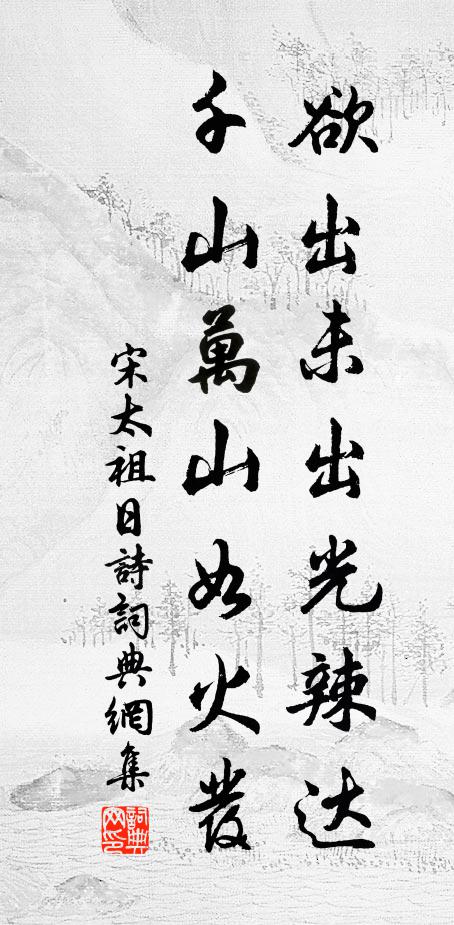 欲出未出光辣达
千山萬山如火發
宋太祖日詩詞典網集
詞典
网印